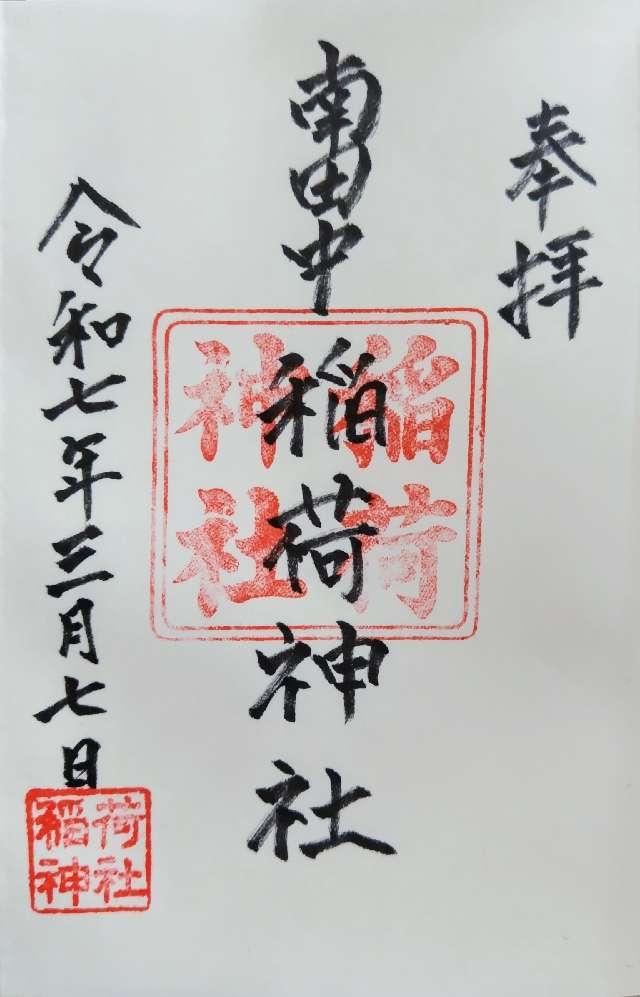 奉拝
南田中
稲荷神社
稲荷
神社
令和七年三月七日
稲荷
神社